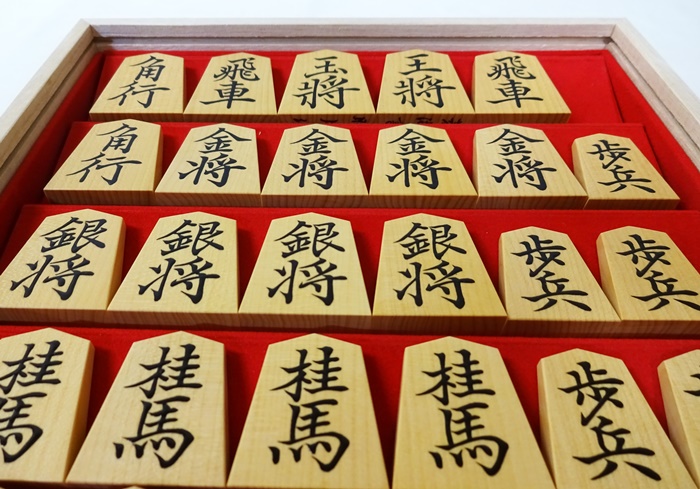 角行 飛車 玉将 王将 飛車
角行 金将 金将 金将 金将 歩兵
銀将 銀将 銀将 銀将 歩兵 歩兵
桂馬 桂馬 桂馬 桂馬 歩兵